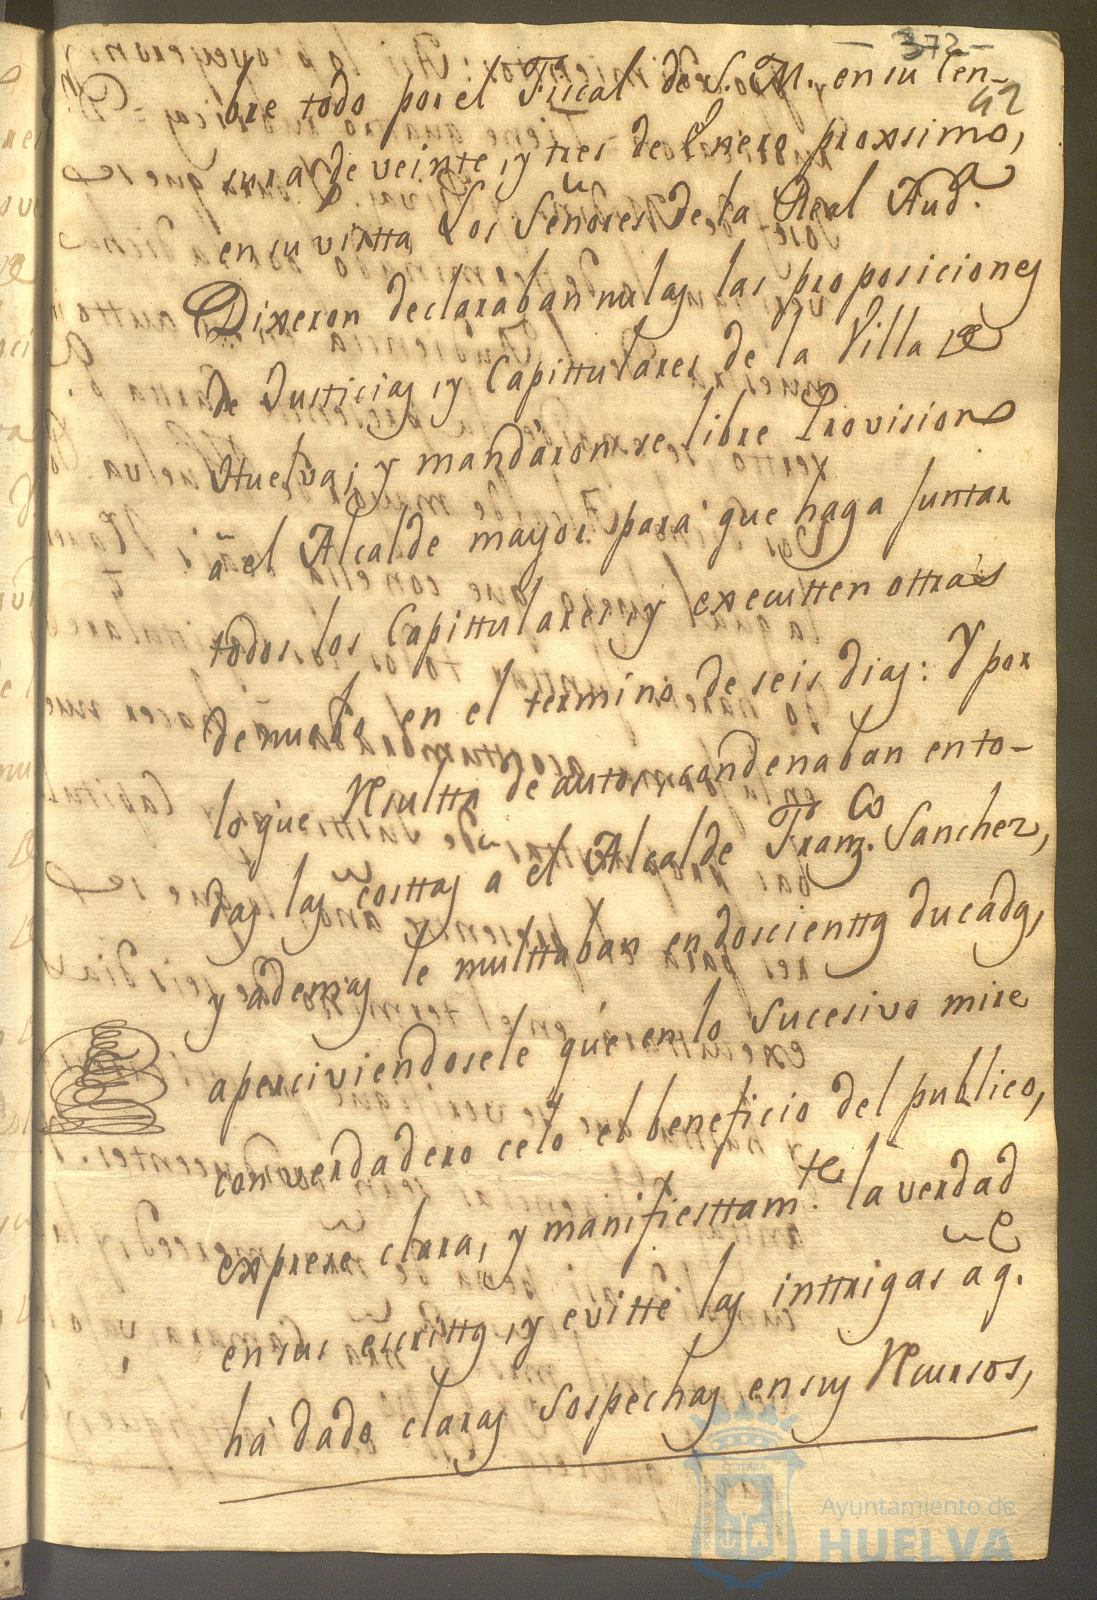 - 372 -
42
bre todo por el Fiscal de S. M. en su Cen-
sura de veinte, y tres de Enero proxsimo,
en su vistta, Los Señores de la Real Aud.a
Dixeron declaraban nulas las proposiciones
de Justicias, y Capittulares de la Villa de
Huelva; y mandaron se libre Provision
a el Alcalde mayor, para que haga Juntar
todos los Capittulares, y executten ottras
de nuebo en el termino de seis dias: Y por
lo que Resultta de autos, condenaban en to-
das las costtas a el Alcalde Franz.co Sanchez,
y ademas le multtaban en doscienttos ducados,
aperciviendosele que en lo sucesivo mire
con verdadero celo el beneficio del publico,
exprese clara, y manifiesttam.te la verdad
en sus escrittos, y evitte las inttrigas a q.ue
ha dado claras sospechas en sus Recursos,
Ayuntamiento de
HUELVA